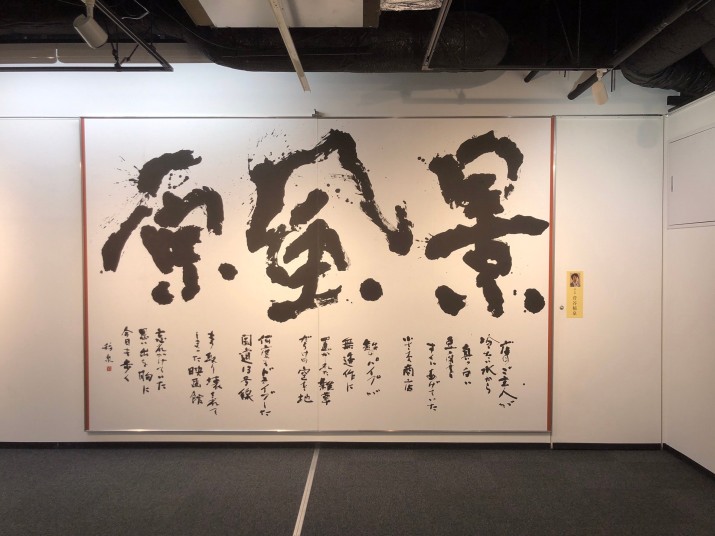 原風景
店のご主人が
冷たい水から
真っ白い
豆腐を
すくいあげていた
小さな商店
パイプが
無造作に
置かれた雑草
だらけの空き地
何度もドライブした
国道13号線
もう取り壊されて
しまった映画館
忘れかけていた
思い出を胸に
今日も歩く